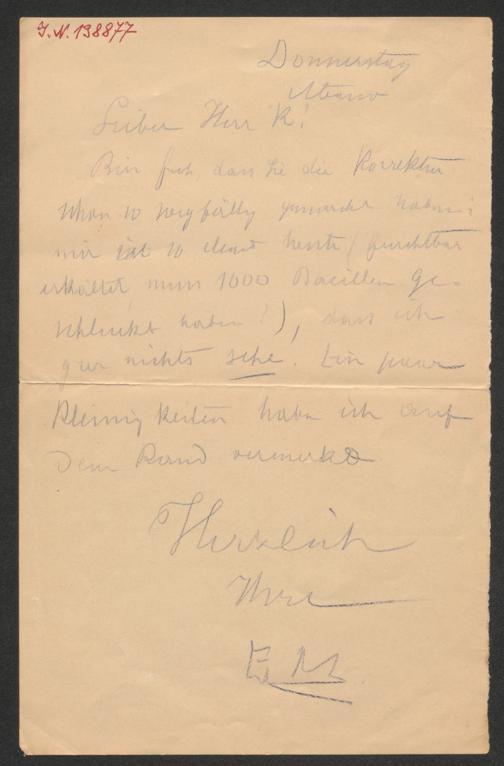 J.N. 138877
Donnerstag
Abend
Lieber Herr K!
Bin froh, dass Sie die Korrektur
schon so sorgfältig gemacht haben;
mir ist so elend heute (furchtbar
erkältet muss 1000 Bacillen ge-
schluckt haben!), dass ich
gar nichts sehe. Ein paar
Kleinigkeiten habe ich auf
dem Rand vermerkt
Herzlich
Ihre